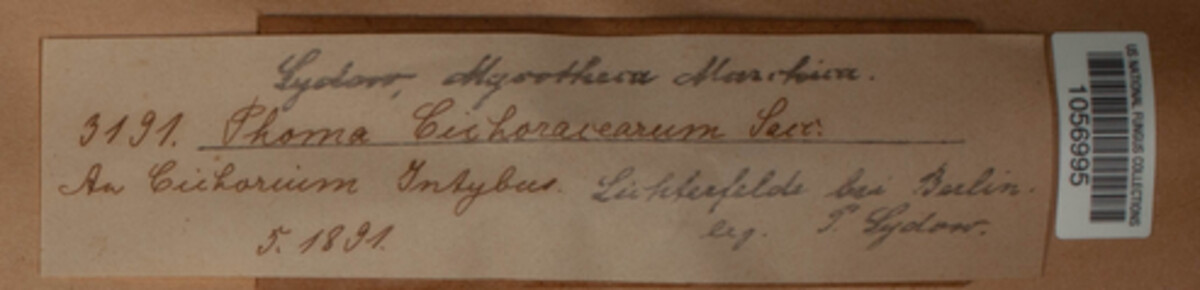 Sydow, Mycotheca Marchica.
3191. Phoma Cichoracearum Sacc.
An Cichorium Intybus. Lichterfelde bei Berlin.
5. 1891. leg. P. Sydow.
US NATIONAL FUNGUS COLLECTIONS
1056995